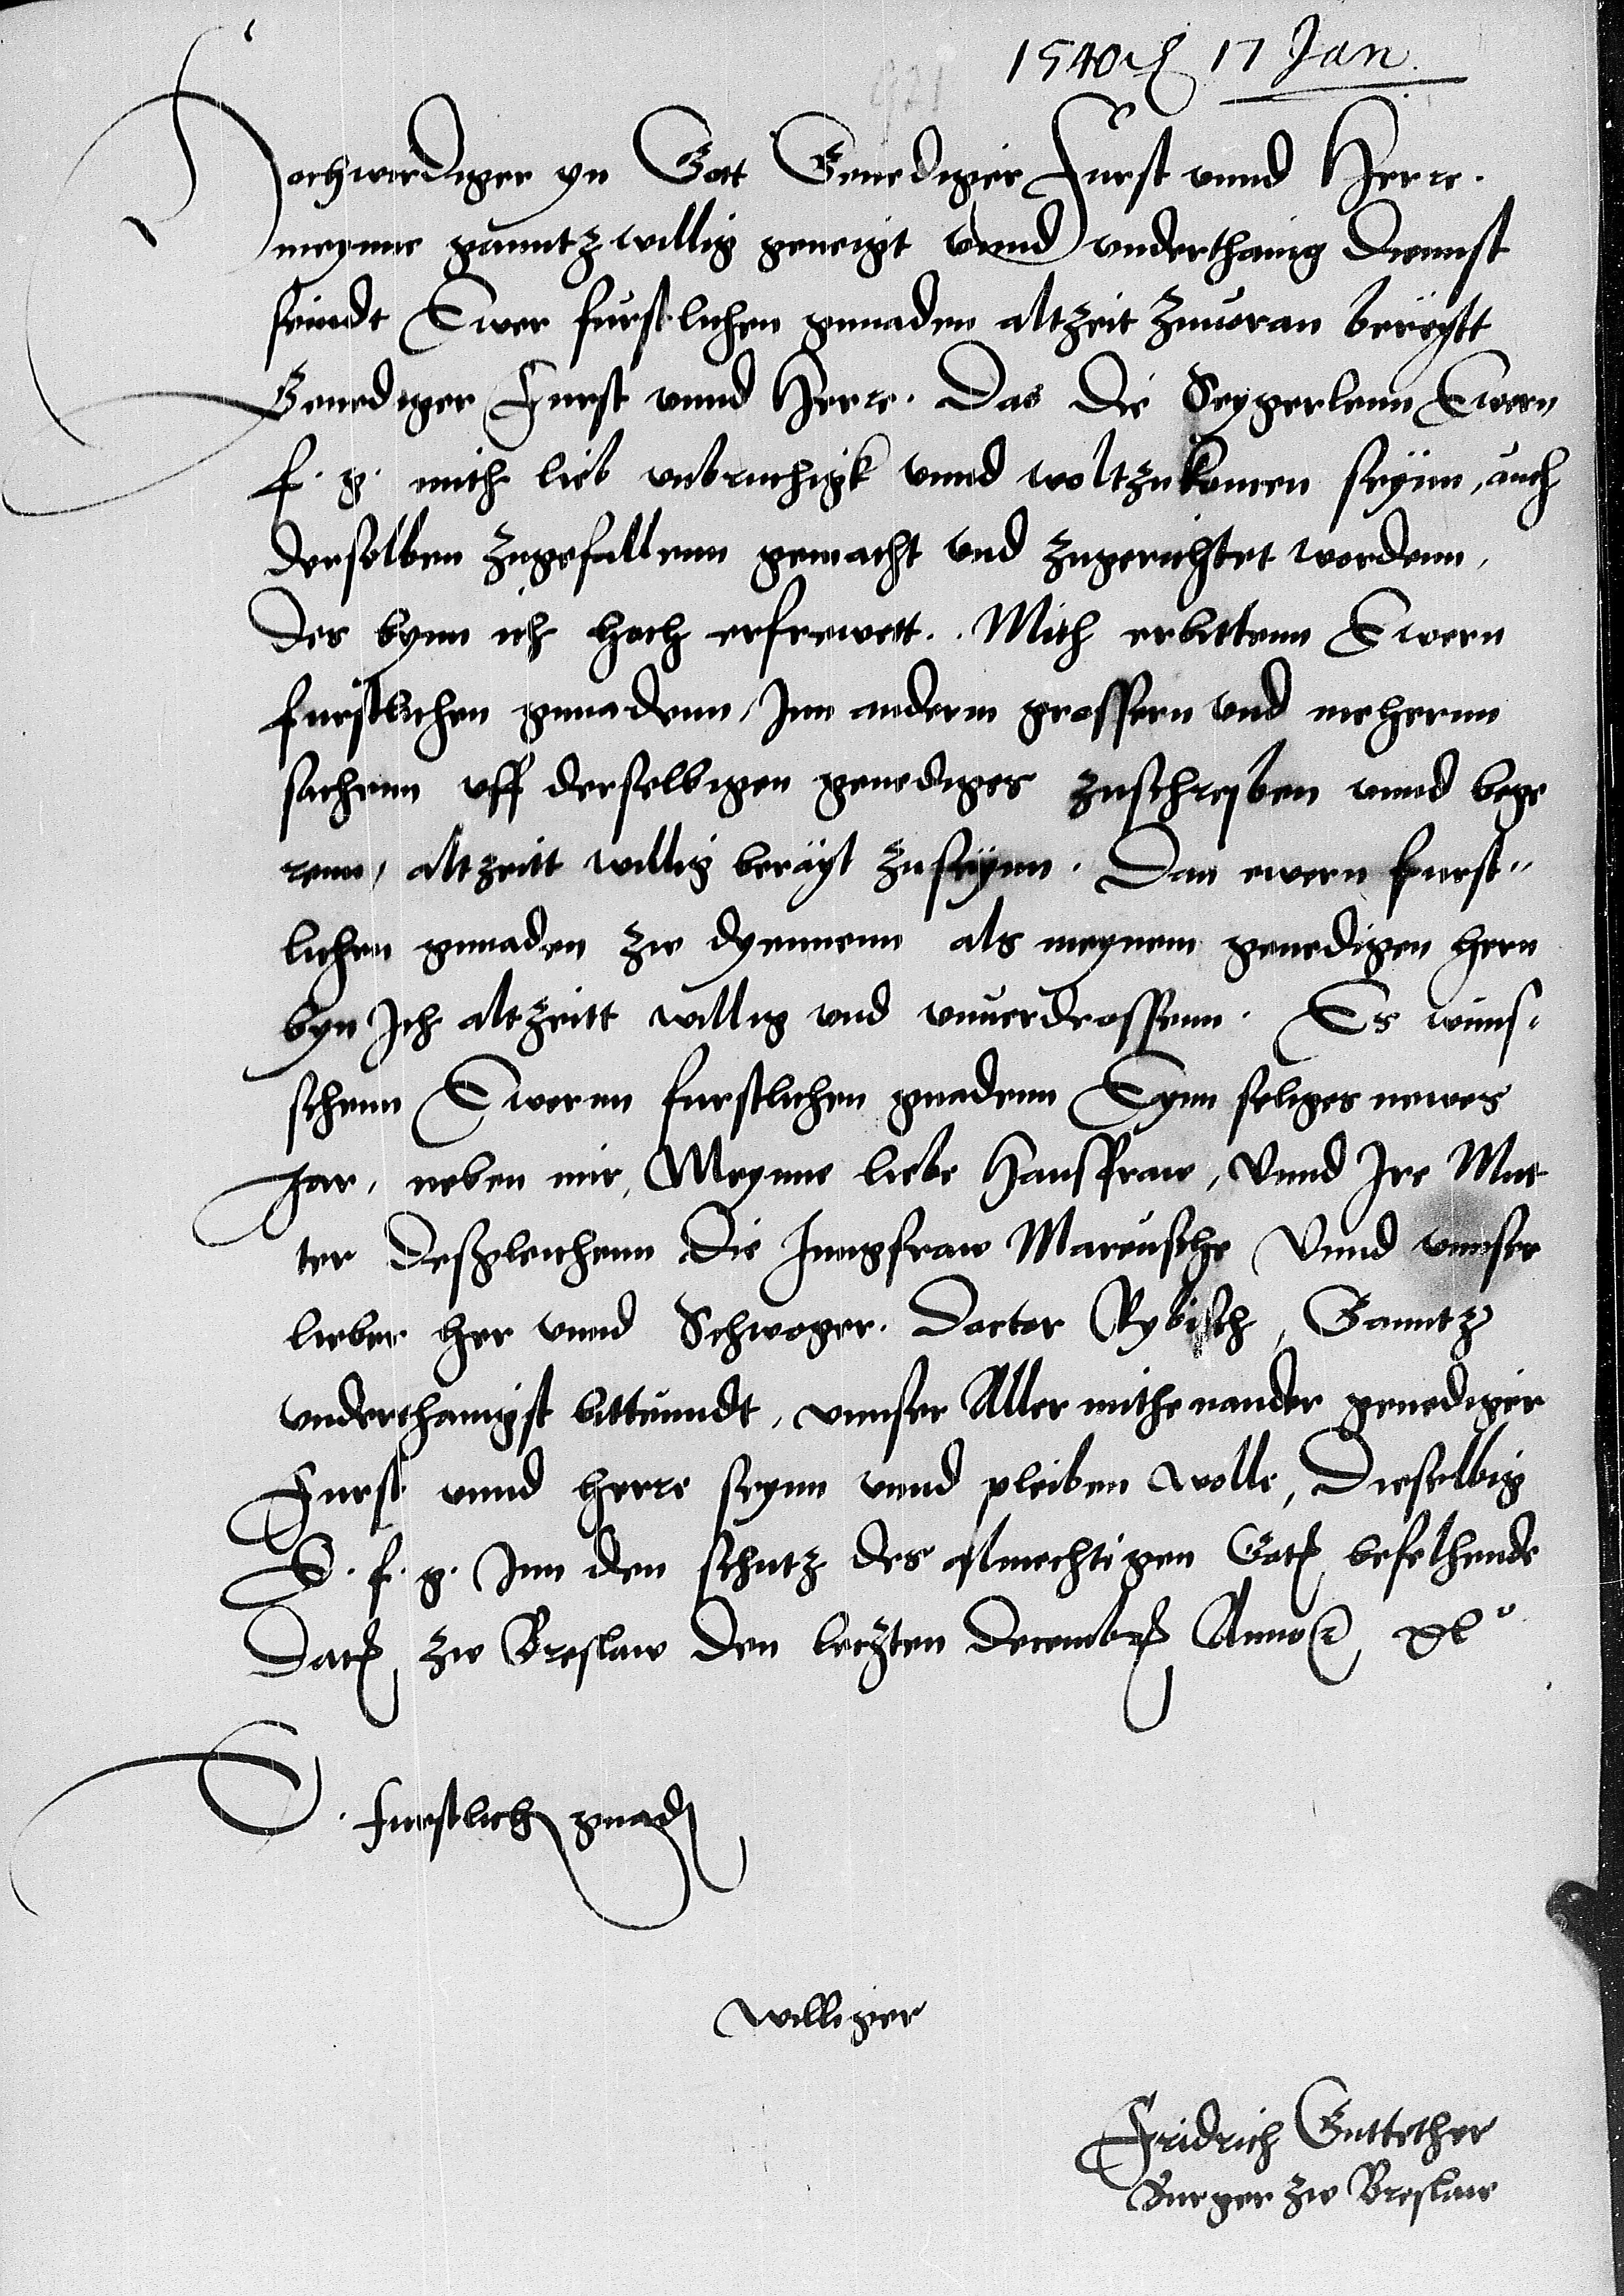 1540 17 Jan.
Hochwirdiger yn Gott Genediger Furst vnnd Herre.
meynne ganntz willig geneigt vnnd vnderthanig Diennst
seindt Ewer furstlichen gnnaden altzeit zuuoran bereytt
Genediger Furst vnnd Herre. Das die Seygerlenn Ewern
f. g. mith lieb vnbruchigk vnnd woltzukomen seynn, auch
derselben zugefallenn gemacht vnd zugerichtet wordenn,
Des bynn ich hoch erfrewett. Mich erbittenn Ewern
furstlichen gnnadenn, Jnn anderm grossern vnd mehernn
sachenn vff derselbigen genediges zuschreyben vnnd bege
renn, altzeitt willig berayt zu seynn. Dan ewern furst-
lichen gnnaden zw dyennenn als meynem genedigen hern
byn Jch altzeitt willig vnd vnuerdrossenn. Es wuns-
schenn Ewernn furstlichen gnadenn Eynn seliges newes
Jar, neben mir, Meynne liebe Hausfraw, Vnnd Jre Mut
ter Desgleichenn Die Jungfraw Marusche Vnnd vnnser
lieber her vnnd Schwoger. Doctor Rybisch, Ganntz
vnderthanigst bittenndt, vnnser Aller mithenander genediger
Furst vnnd herre seynn vnnd pleiben wolle, Dieselbig
E. f. g. Jnn den schutz des almechtigen Gots befelhende
Dat zw Breslaw den letzten Decembr Anno xl°
E. furstlich gnad
williger
Fridrich Guttether
Burger zw Breslaw